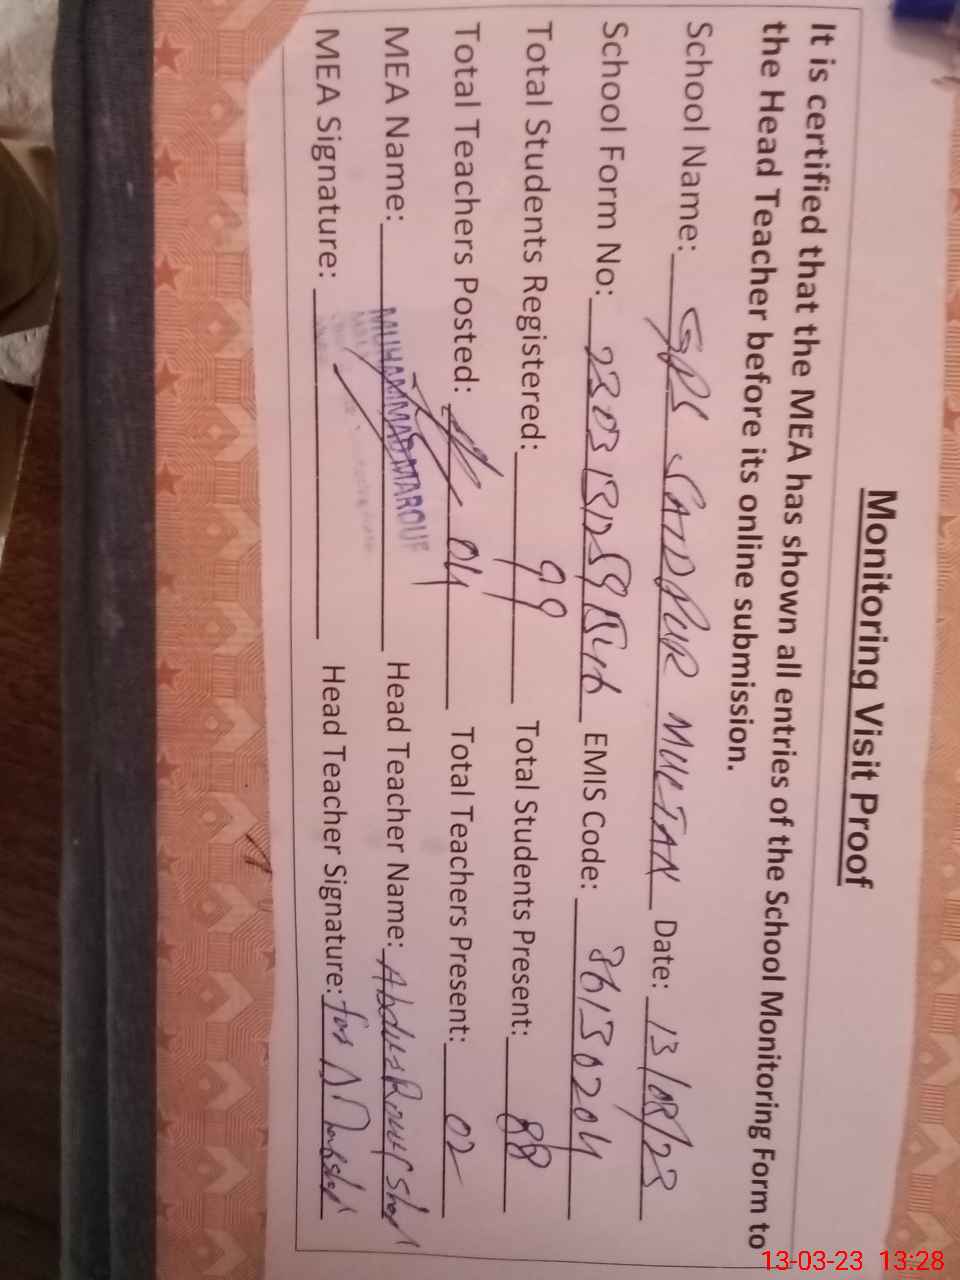 Monitoring Visit Proof
It is certified that the MEA has shown all entries of the School Monitoring Form to
the Head Teacher before its online submission.
School Name: GPS SAIDPUR MULTAN Date: 13/03/23
School Form No: EMIS Code: 36130204
Total Students Registered: 99 Total Students Present: 88
Total Teachers Posted: 04 Total Teachers Present: 02
MEA Name: MUHAMMAD MAROUF Head Teacher Name: Abdul Rouf Shad
MEA Signature: Head Teacher Signature: for
13-03-23 13:28